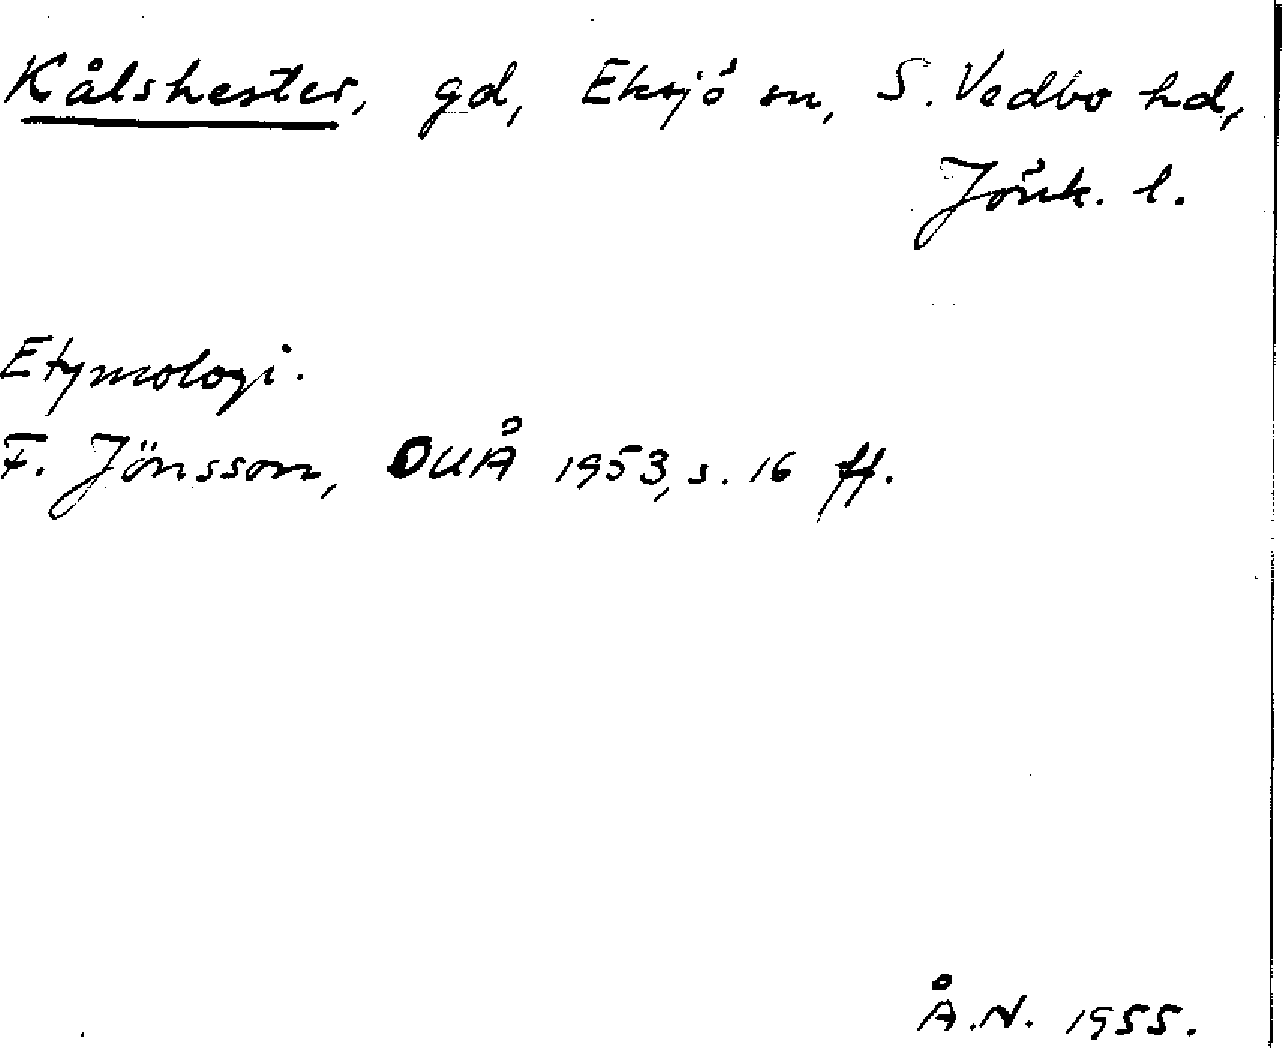 Kålshester, gd, Eksjö sn, S. Vedbo hd,
Jönk. l.
Etymologi.
F. Jönsson, OUÅ 1953, s. 16 ff.
Å.N. 1955.